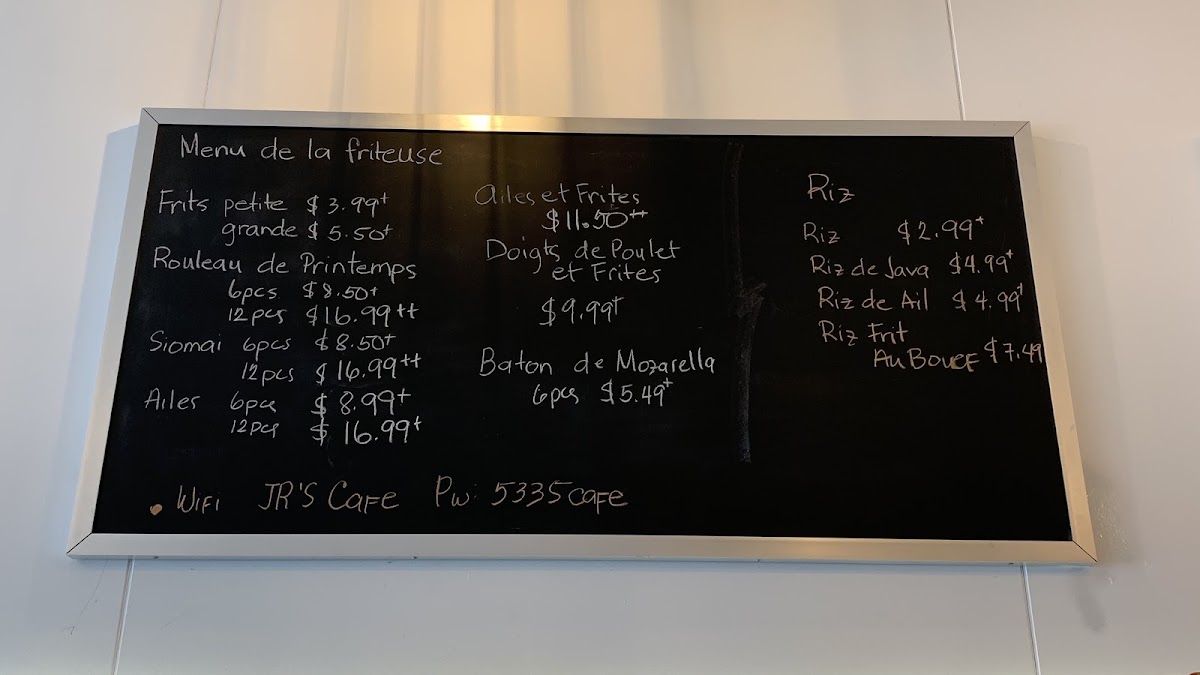 Menu de la friteuse
Frits petite $3.99+
grande $5.50+
Rouleau de Printemps
6pcs $8.50+
12pcs $16.99++
Siomai 6pcs $8.50+
12pcs $16.99++
Ailes 6pcs $8.99+
12pcs $16.99+
Ailes et Frites
$11.50++
Doigts de Poulet
et Frites
$9.99+
Baton de Mozarella
6pcs $5.49+
Riz
Riz $2.99+
Riz de Java $4.99+
Riz de Ail $4.99+
Riz Frit
Au Bouef $7.49
• Wifi JR'S Cafe Pw: 5335cafe